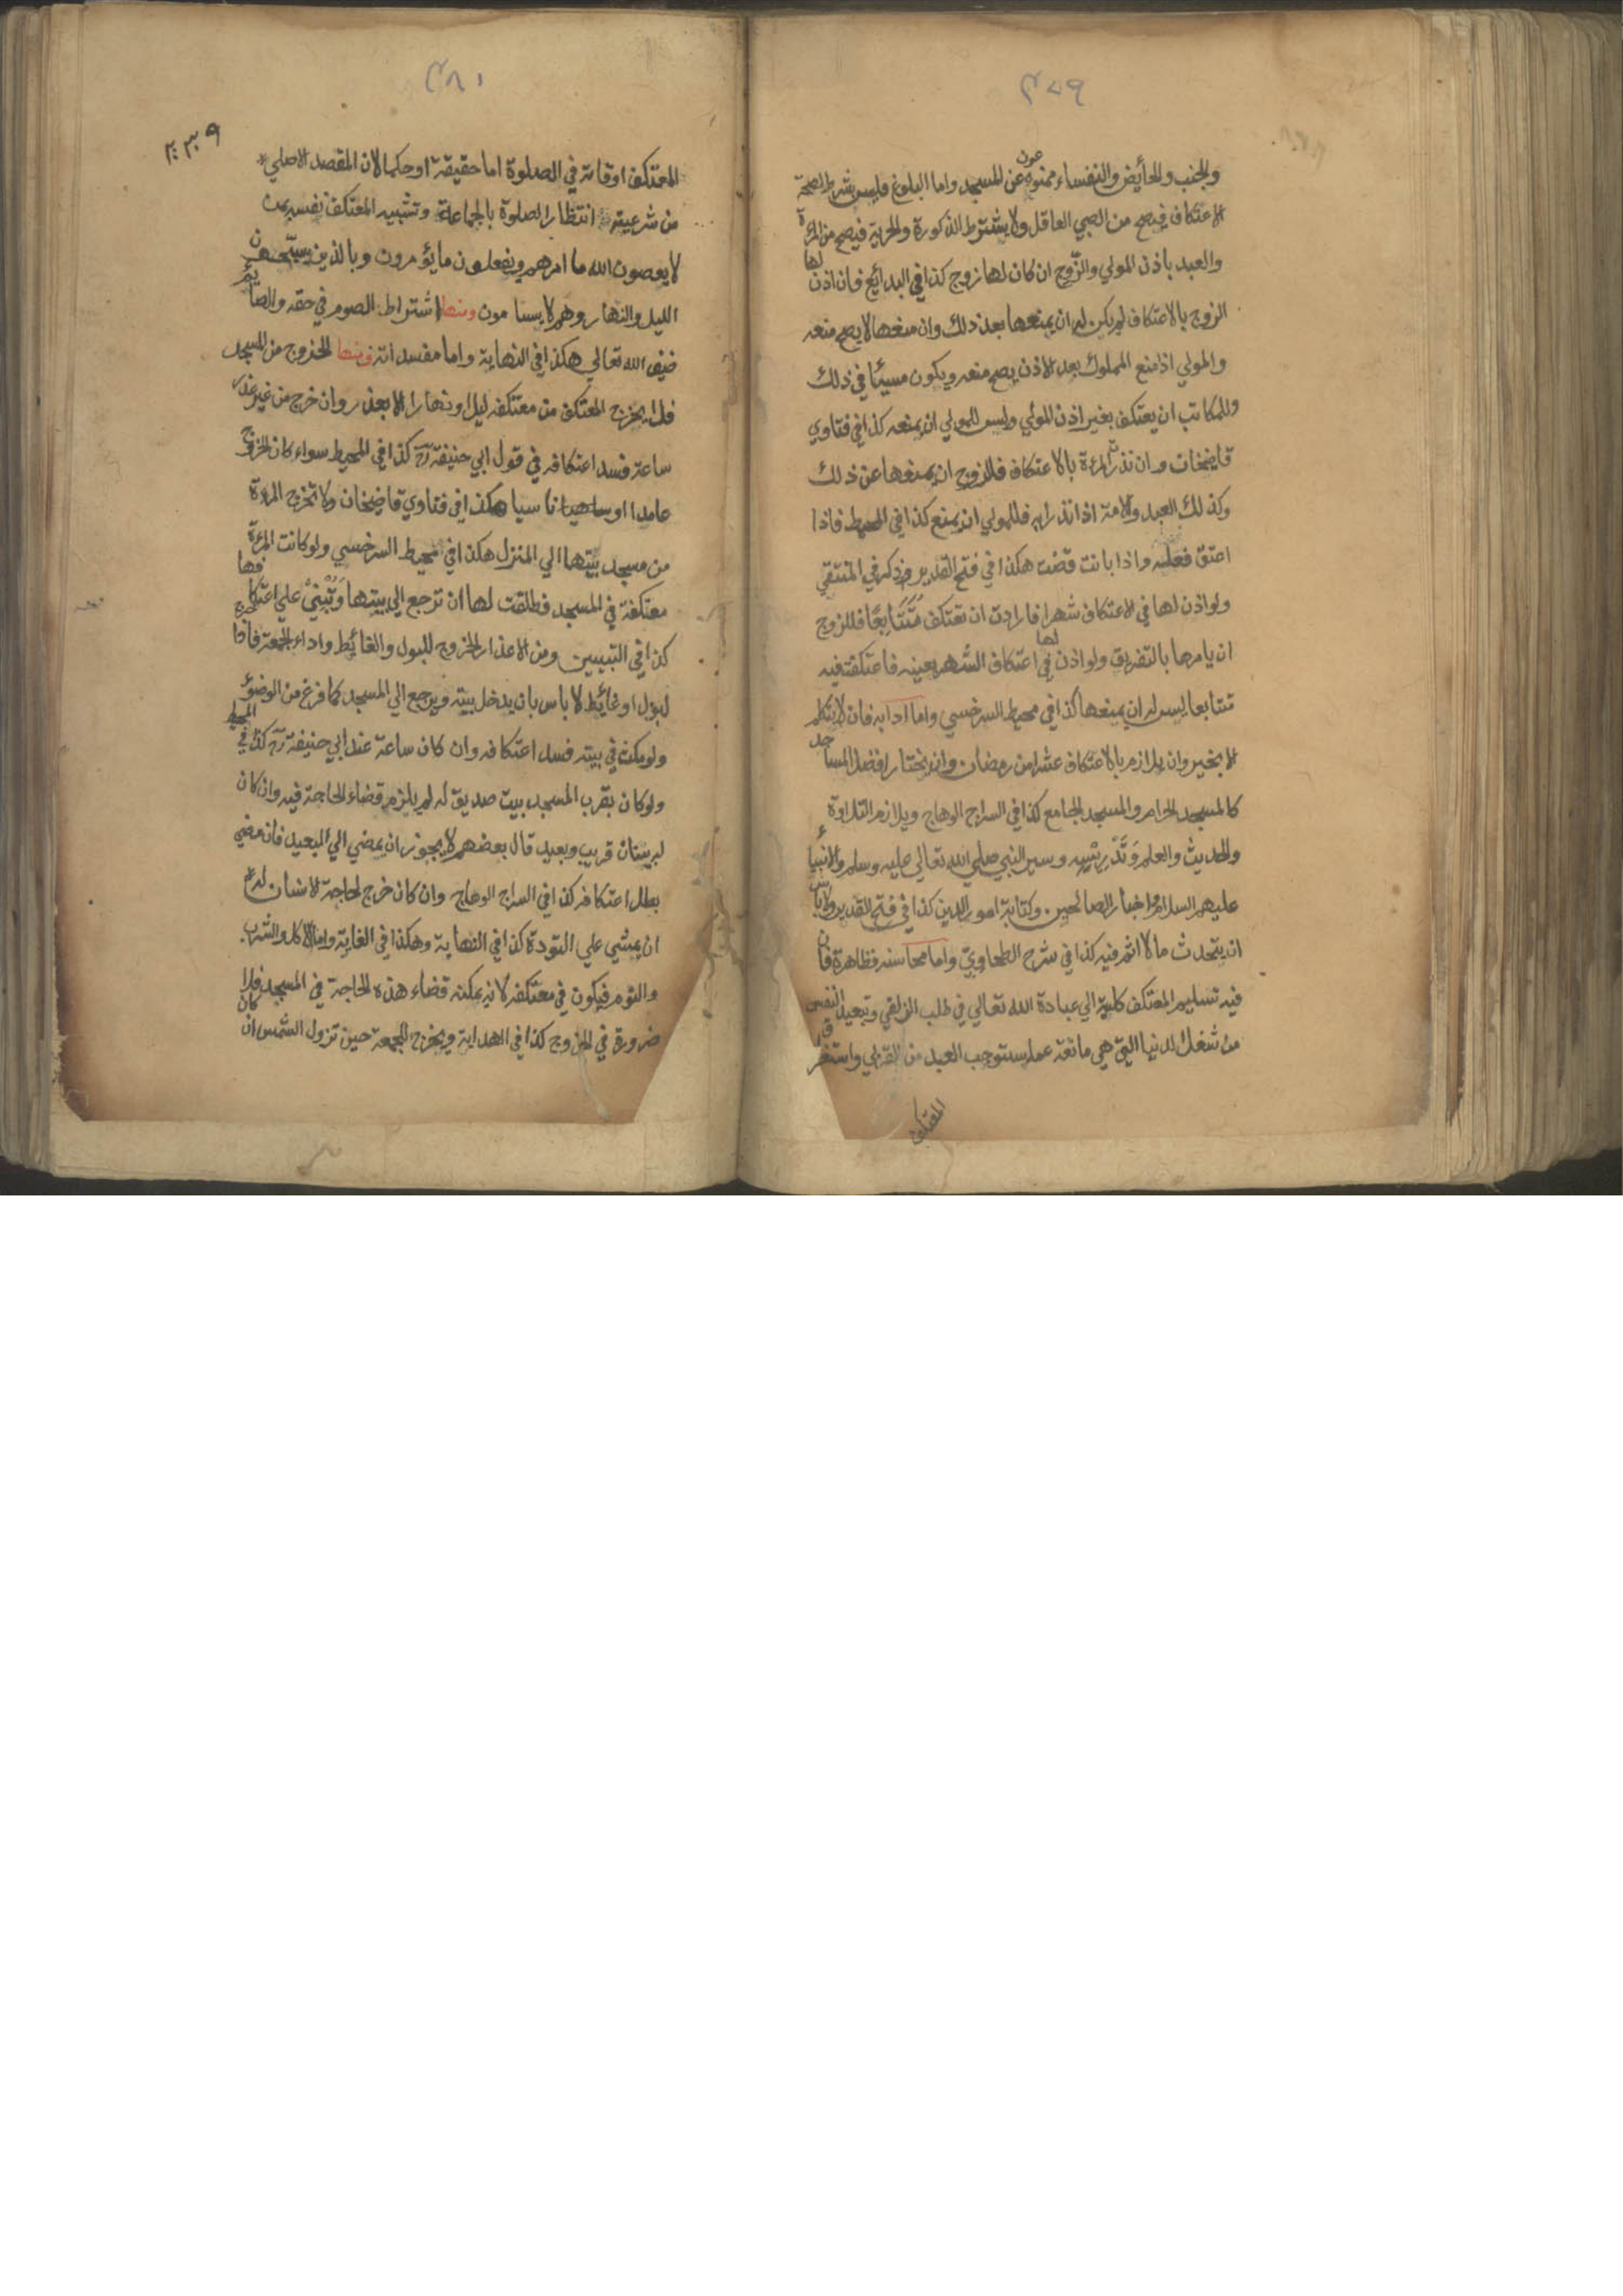 ٤٧٩
والجنب والحائض والنفساء ممنوعون عن المسجد واما البلوغ فليس بشرط لصحة
الاعتكاف فيصح من الصبي العاقل ولا يشترط الذكورة والحرية فيصح من المرأة
والعبد باذن المولي والزوج ان كان لها زوج كذا في البدائع فان اذن لها
الزوج بالاعتكاف لم يكن له ان يمنعها بعد ذلك وان منعها لا يصح منعه
والمولي اذا منع المملوك بعد الاذن يصح منعه ويكون مسيئا في ذلك
وللمكاتب ان يعتكف بغير اذن المولي وليس للمولي ان يمنعه كذا في فتاوي
قاضيخان وان نذرت المرءة بالاعتكاف فللزوج ان يمنعها عن ذلك
وكذلك العبد والامة اذا نذرا به فللمولي ان يمنع كذا في المحيط فاذا
اعتق فعليه واذا بانت قضت هكذا في فتح القدير وذكر في المنتقي
ولو اذن لها في الاعتكاف شهرا فارادت ان تعتكف مُتَتَابِعًا فللزوج
ان يامرها بالتفريق ولو اذن لها في اعتكاف الشهر بعينه فاعتكفت فيه
تتابعا ليس له ان يمنعها كذا في محيط السرخسي واما ادابه فان لا يتكلم
الا بخير وان يلازم بالاعتكاف عشرا من رمضان وان يختار افضل المساجد
كالمسجد الحرام والمسجد الجامع كذا في السراج الوهاج ويلازم التلاوة
والحديث والعلم وَتَدْرِيْسِه وسير النبي صلي الله تعالي عليه وسلم والانبياء
عليهم السلام واخبار الصالحين وكتابة امور الدين كذا في فتح القدير ولا باس
ان يتحدث ما لا اثم فيه كذا في شرح الطحاوي واما محاسنه فظاهرة فان
فيه تسليم المعتكف كليته الي عبادة الله تعالي في طلب الزلفي وتبعيد النفس
من شغل الدنيا التي هي مانعة عما يستوجب العبد من القربي واستغراق
المعتكف
٤٨٠
٢٣٩
المعتكف اوقاته في الصلوة اما حقيقة او حكما لان المقصد الاصلي
من شرعيته انتظار الصلوة بالجماعة وتشبيه المعتكف نفسه بمن
لا يعصون الله ما امرهم ويفعلون ما يؤمرون وبالذين يسبّحون
الليل والنهار وهم لا يسامون ومنها اشتراط الصوم في حقه والصائم
ضيف الله تعالي هكذا في النهاية واما مفسداته فمنها الخروج من المسجد
فلا يخرج المعتكف من معتكفه ليلا ونهارا الا بعذر وان خرج من غير عذر
ساعة فسد اعتكافه في قول ابي حنيفة رح كذا في المحيط سواء كان الخروج
عامدا او ناسيا هكذا في فتاوي قاضيخان ولا تخرج المرءة
من مسجد بيتها الي المنزل هكذا في محيط السرخسي ولو كانت المرءة
معتكفة في المسجد فطلقت لها ان ترجع الي بيتها وَتُبْنيْ علي اعتكافها
كذا في التبيين ومن الاعذار الخروج للبول والغائط واداء الجمعة فاذا خرج
لبول او غائط لا باس بان يدخل بيته ويرجع الي المسجد كما فرغ من الوضوء
ولو مكث في بيته فسد اعتكافه وان كان ساعة عند ابي حنيفة رح كذا في المحيط
ولو كان بقرب المسجد بيت صديق له لم يلزم قضاء الحاجة فيه وان كان
له بيتان قريب وبعيد قال بعضهم لا يجوز ان يمضي الي البعيد فان مضي
بطل اعتكافه كذا في السراج الوهاج وان كان خرج لحاجة الانسان له
ان يمشي علي التؤدة كذا في النهاية وهكذا في الغاية واما الاكل والشرب
والنوم فيكون في معتكفه لانه يمكنه قضاء هذه الحاجة في المسجد فلا
ضرورة في الخروج كذا في الهداية ويخرج للجمعة حين تزول الشمس ان كان